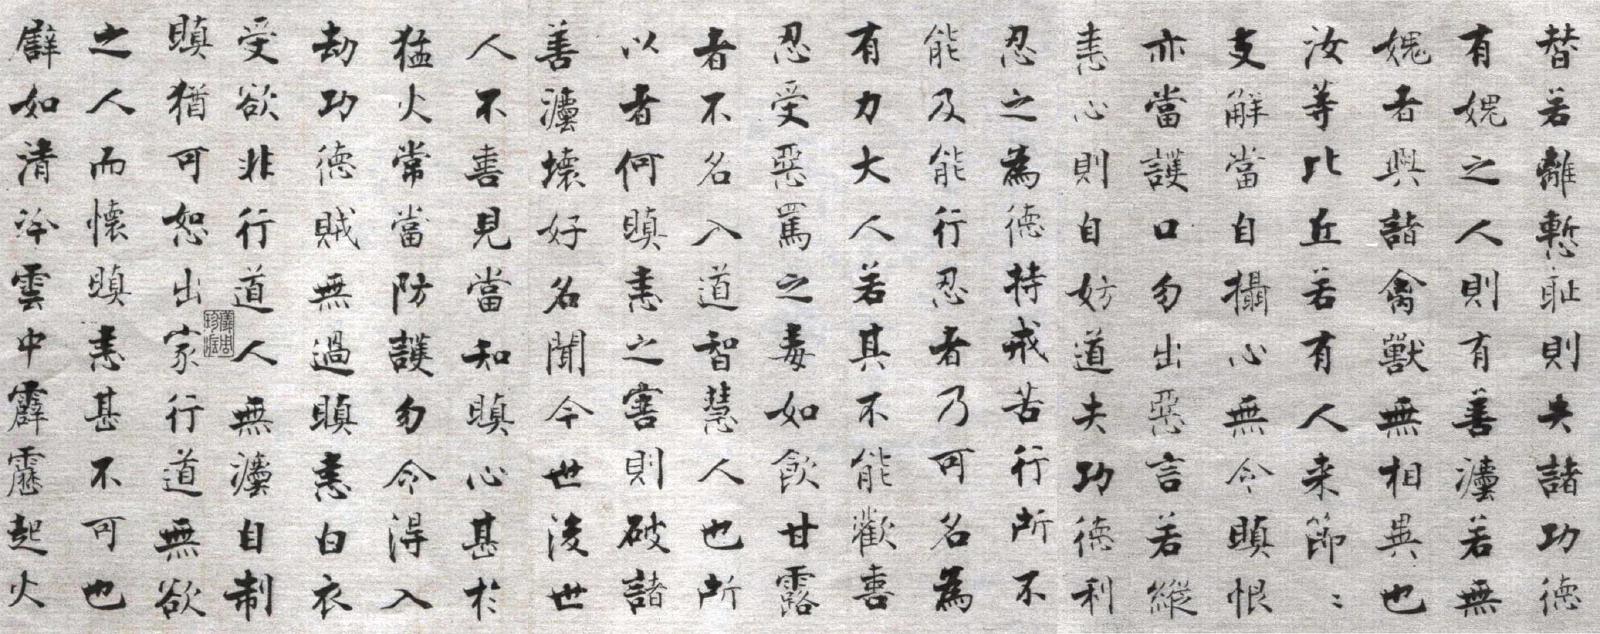 替若離慙耻則失諸功德
有媿之人則有善灋若無
媿者與諸禽獸無相異也
汝等比丘若有人来節〻
支解當自攝心無令瞋恨
亦當護口勿出惡言若縱
恚心則自妨道失功德利
忍之為德持戒苦行所不
能及能行忍者乃可名為
有力大人若其不能歡喜
忍受惡罵之毒如飲甘露
者不名入道智慧人也所
以者何瞋恚之害則破諸
善灋壊好名聞今世後世
人不喜見當知瞋心甚於
猛火常當防護勿令得入
劫功德賊無過瞋恚白衣
受欲非行道人無灋自制
瞋猶可恕出家行道無欲
之人而懷瞋恚甚不可也
譬如清冷雲中霹靂起火